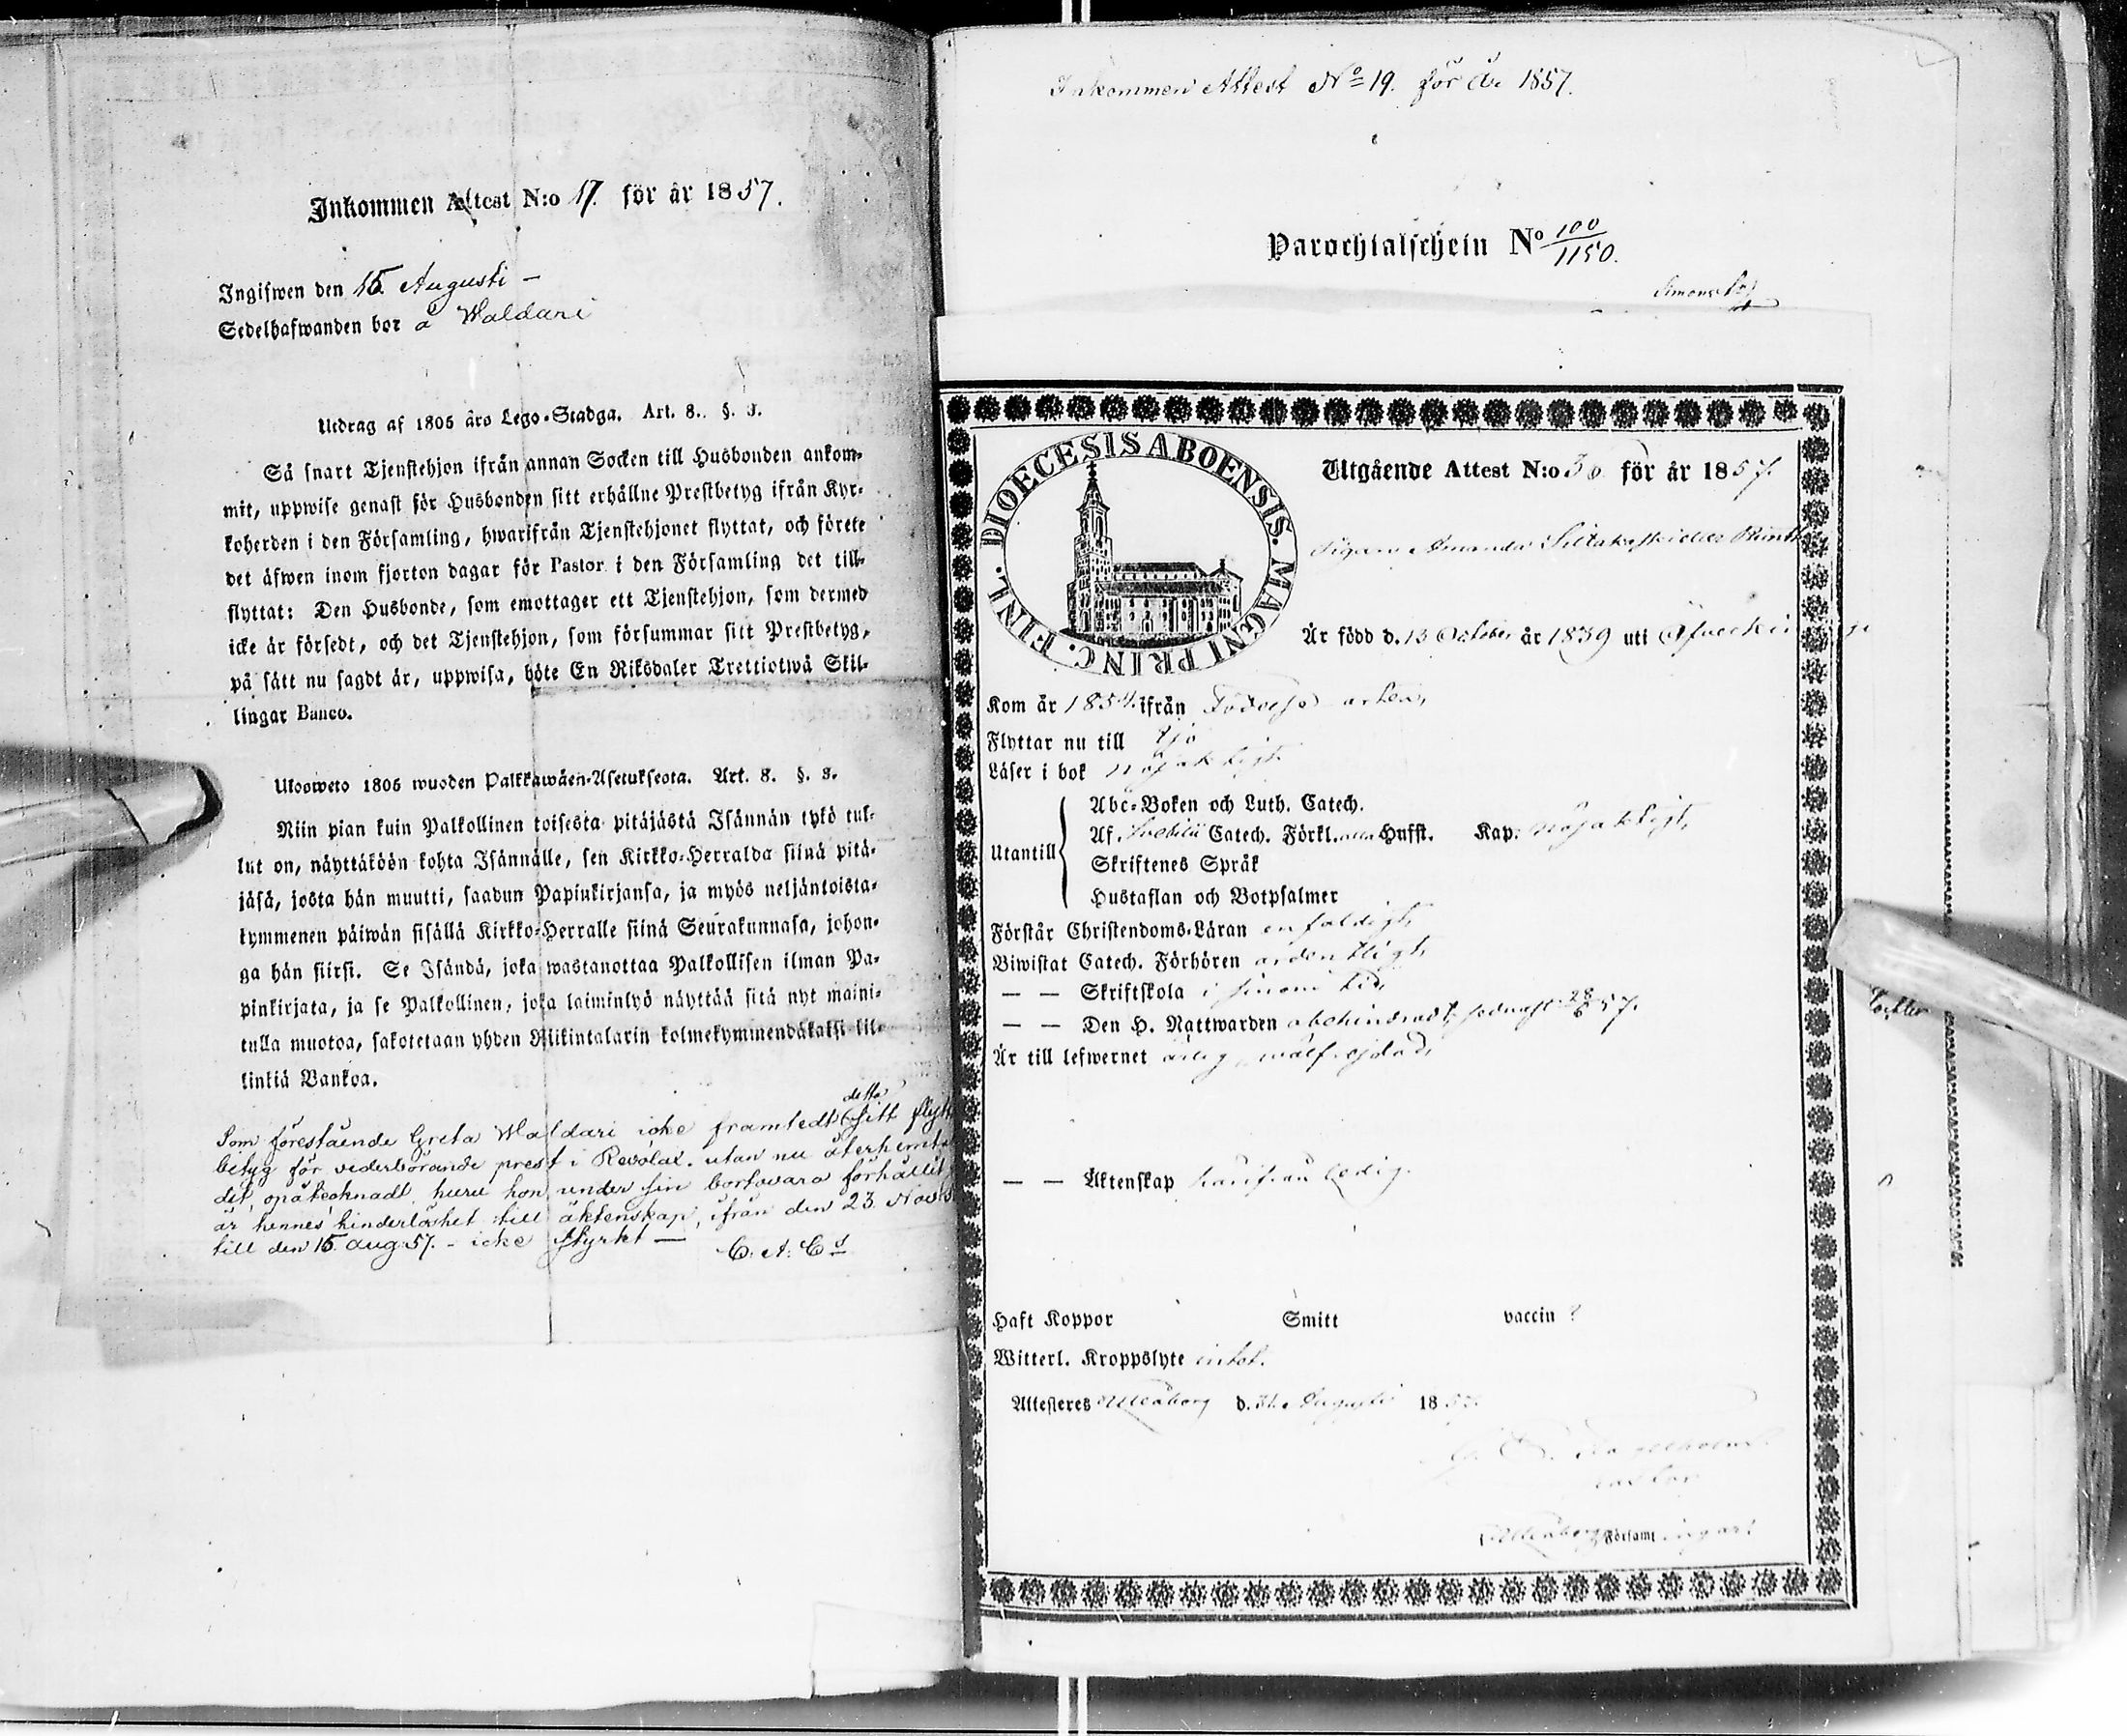 Inkommen Attest N:o 17. för år 1857.
Ingifwen den 15. Augusti –
Sedelhafwanden bor å Waldari
Utdrag af 1805 års Lego-Stadga. Art. 8. §. 3.
Så snart Tjenstehjon ifrån annan Socken till Husbonden ankom-
mit, uppwise genast för Husbonden sitt erhållne Prestbetyg ifrån Kyr-
koherden i den Församling, hwarifrån Tjenstehjonet flyttat, och förete
det äfwen inom fjorton dagar för Pastor i den Församling det till-
flyttat: Den Husbonde, som emottager ett Tjenstehjon, som dermed
icke är försedt, och det Tjenstehjon, som försummar sitt Prestbetyg,
på sätt nu sagdt är, uppwisa, böte En Riksdaler Trettiotwå Skil-
lingar Banco.
Ulosweto 1805 wuoden Palkkawäen-Asetuksesta. Art. 8. §. 3.
Niin pian kuin Palkollinen toisesta pitäjästä Isännän tykö tul-
lut on, näyttäköön kohta Isännälle, sen Kirkko-Herralda siinä pitä-
jäsä, josta hän muutti, saadun Papinkirjansa, ja myös neljäntoista-
kymmenen päiwän sisällä Kirkko-Herralle siinä Seurakunnasa, johon-
ga hän siirsi. Se Isändä, joka wastanottaa Palkollisen ilman Pa-
pinkirjata, ja se Palkollinen, joka laiminlyö näyttää sitä nyt maini-
tulla muotoa, sakotetaan yhden Riikintalarin kolmekymmendäkaksi kil-
linkiä Bankoa.
detta
Som förestående Greta Waldari icke framtedt sitt flytt
betyg för vederbörande prest i Revolax. utan nu återhemtat
det, opåtecknadt huru hon under sin bortovaro förhållit
är hennes hinderlöshet till äktenskap, ifrån den 23. Nov
till den 15 aug. 57. – icke styrkt — C. A. Cd
Inkommen Attest No 19. för år 1857.
Parochialschein No 100/1150.
Utgående Attest N:o 30 för år 1857.
DIOECESIS ABOENSIS. MAGNI PRINC. FINL.
Pigan Amanda
Är född d. 13 October år 1839 uti
Kom år 1854 ifrån
Flyttar nu till Ijo
Läser i bok nöjaktigt
Abc-Boken och Luth. Catech.
Utantill Af. Svebilii Catech. Förkl. alla Hufst. Kap: nöjaktigt,
Skriftenes Språk
Hustaflan och Botpsalmer
Förstår Christendoms-Läran enfaldigt,
Biwistat Catech. Förhören ordentligt,
— — Skriftskola i sinom tid,
— — Den H. Nattwarden obehindradt, sednast 28/6 57.
Är till lefwernet ärlig, wälfrejdad,
— — Äktenskap härifrån ledig.
Haft Koppor Smitt vaccin ?
Witterl. Kroppslyte intet.
Attesteres Uleåborg d. 31. Augusti 1857.
Uleåborgs Församlingar